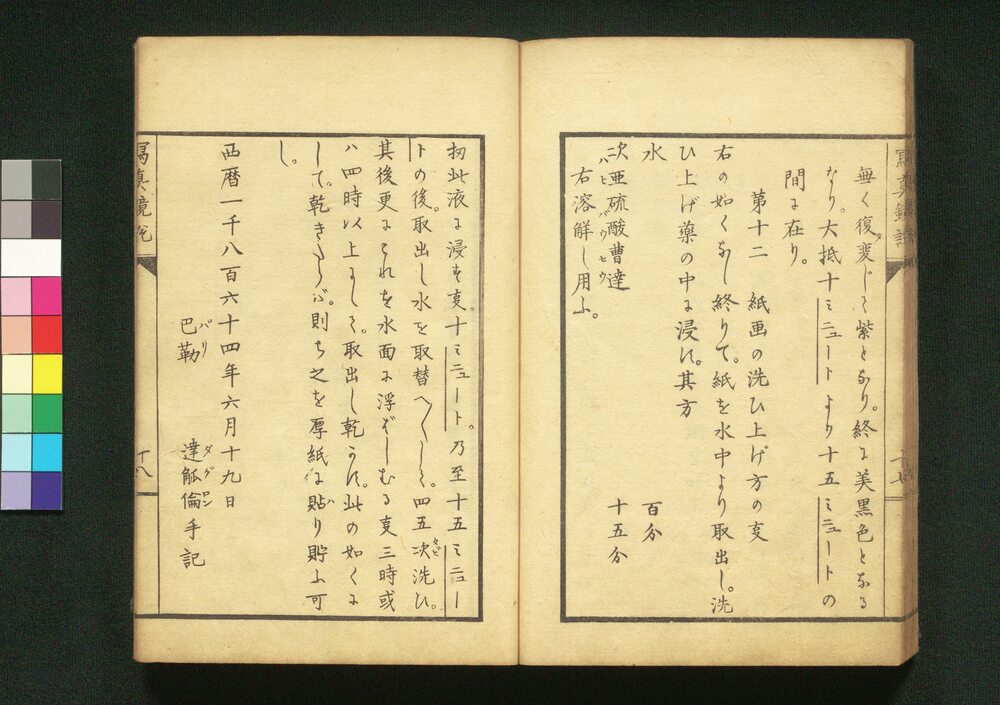 無く復変じて紫となり。終に美黒色となる
なり。大抵十ミニュートより十五ミニュートの
間に在り。
第十二 紙画の洗ひ上げ方の事
右の如くなし終りて。紙を水中より取出し。洗
ひ上げ薬の中に浸す。其方
水 百分
次亜硫酸曹達 十五分
右溶解し用ふ。
扨此液に浸す事。十ミニュート。乃至十五ミニュー
トの後。取出し水を取替へ〳〵して。四五次洗ひ。
其後更にこれを水面に浮ばしむる事三時或
ハ四時以上にして。取出し乾かす。此の如くに
して。乾きたらバ。則ち之を厚紙に貼り貯ふ可
し。
西暦一千八百六十四年六月十九日
巴勒 達觚倫手記
寫真鏡
十八